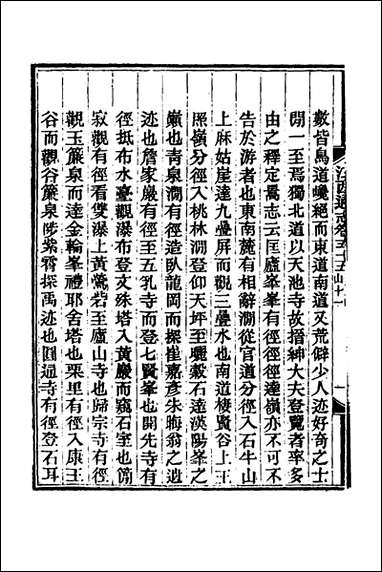 數皆鳥道巉絕而東道南道又荒僻少人迹好奇之士
閒一至焉獨北道以天池寺故搢紳大夫登覽者率多
由之釋定暠志云匡廬峯峯有徑徑徑達嶺亦不可不
告於游者也東南麓有相辭澗從官道分徑入石牛山
上麻姑崖達九疊屏而觀三疊水也南道棲賢谷上王
照嶺分徑入桃林澗登仰天坪至曬穀石達漢陽峯之
巔也青泉澗有徑造臥龍岡而探崔嘉彥朱晦翁之遺
迹也詹家巖有徑至五乳寺而登七賢峯也開先寺有
徑抵布水臺觀瀑布登文殊塔入黃巖而窺石室也傍
寂觀有徑看雙瀑上黃巖砦至廬山寺也歸宗寺有徑
觀玉簾泉而達金輪峯禮耶舍塔也栗里有徑入康王
谷而觀谷簾泉陟紫霄探禹迹也圓通寺有徑登石耳
江西通志卷五十五 山 一